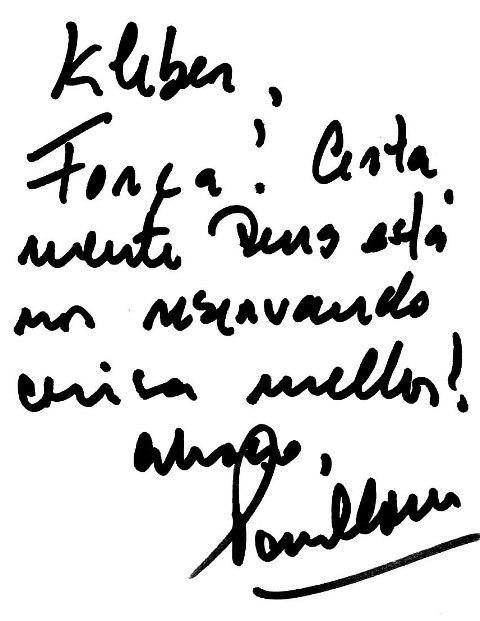 Kleber,
Força! Certa
mente Deus está
nos reservando
coisa melhor!
abraço,